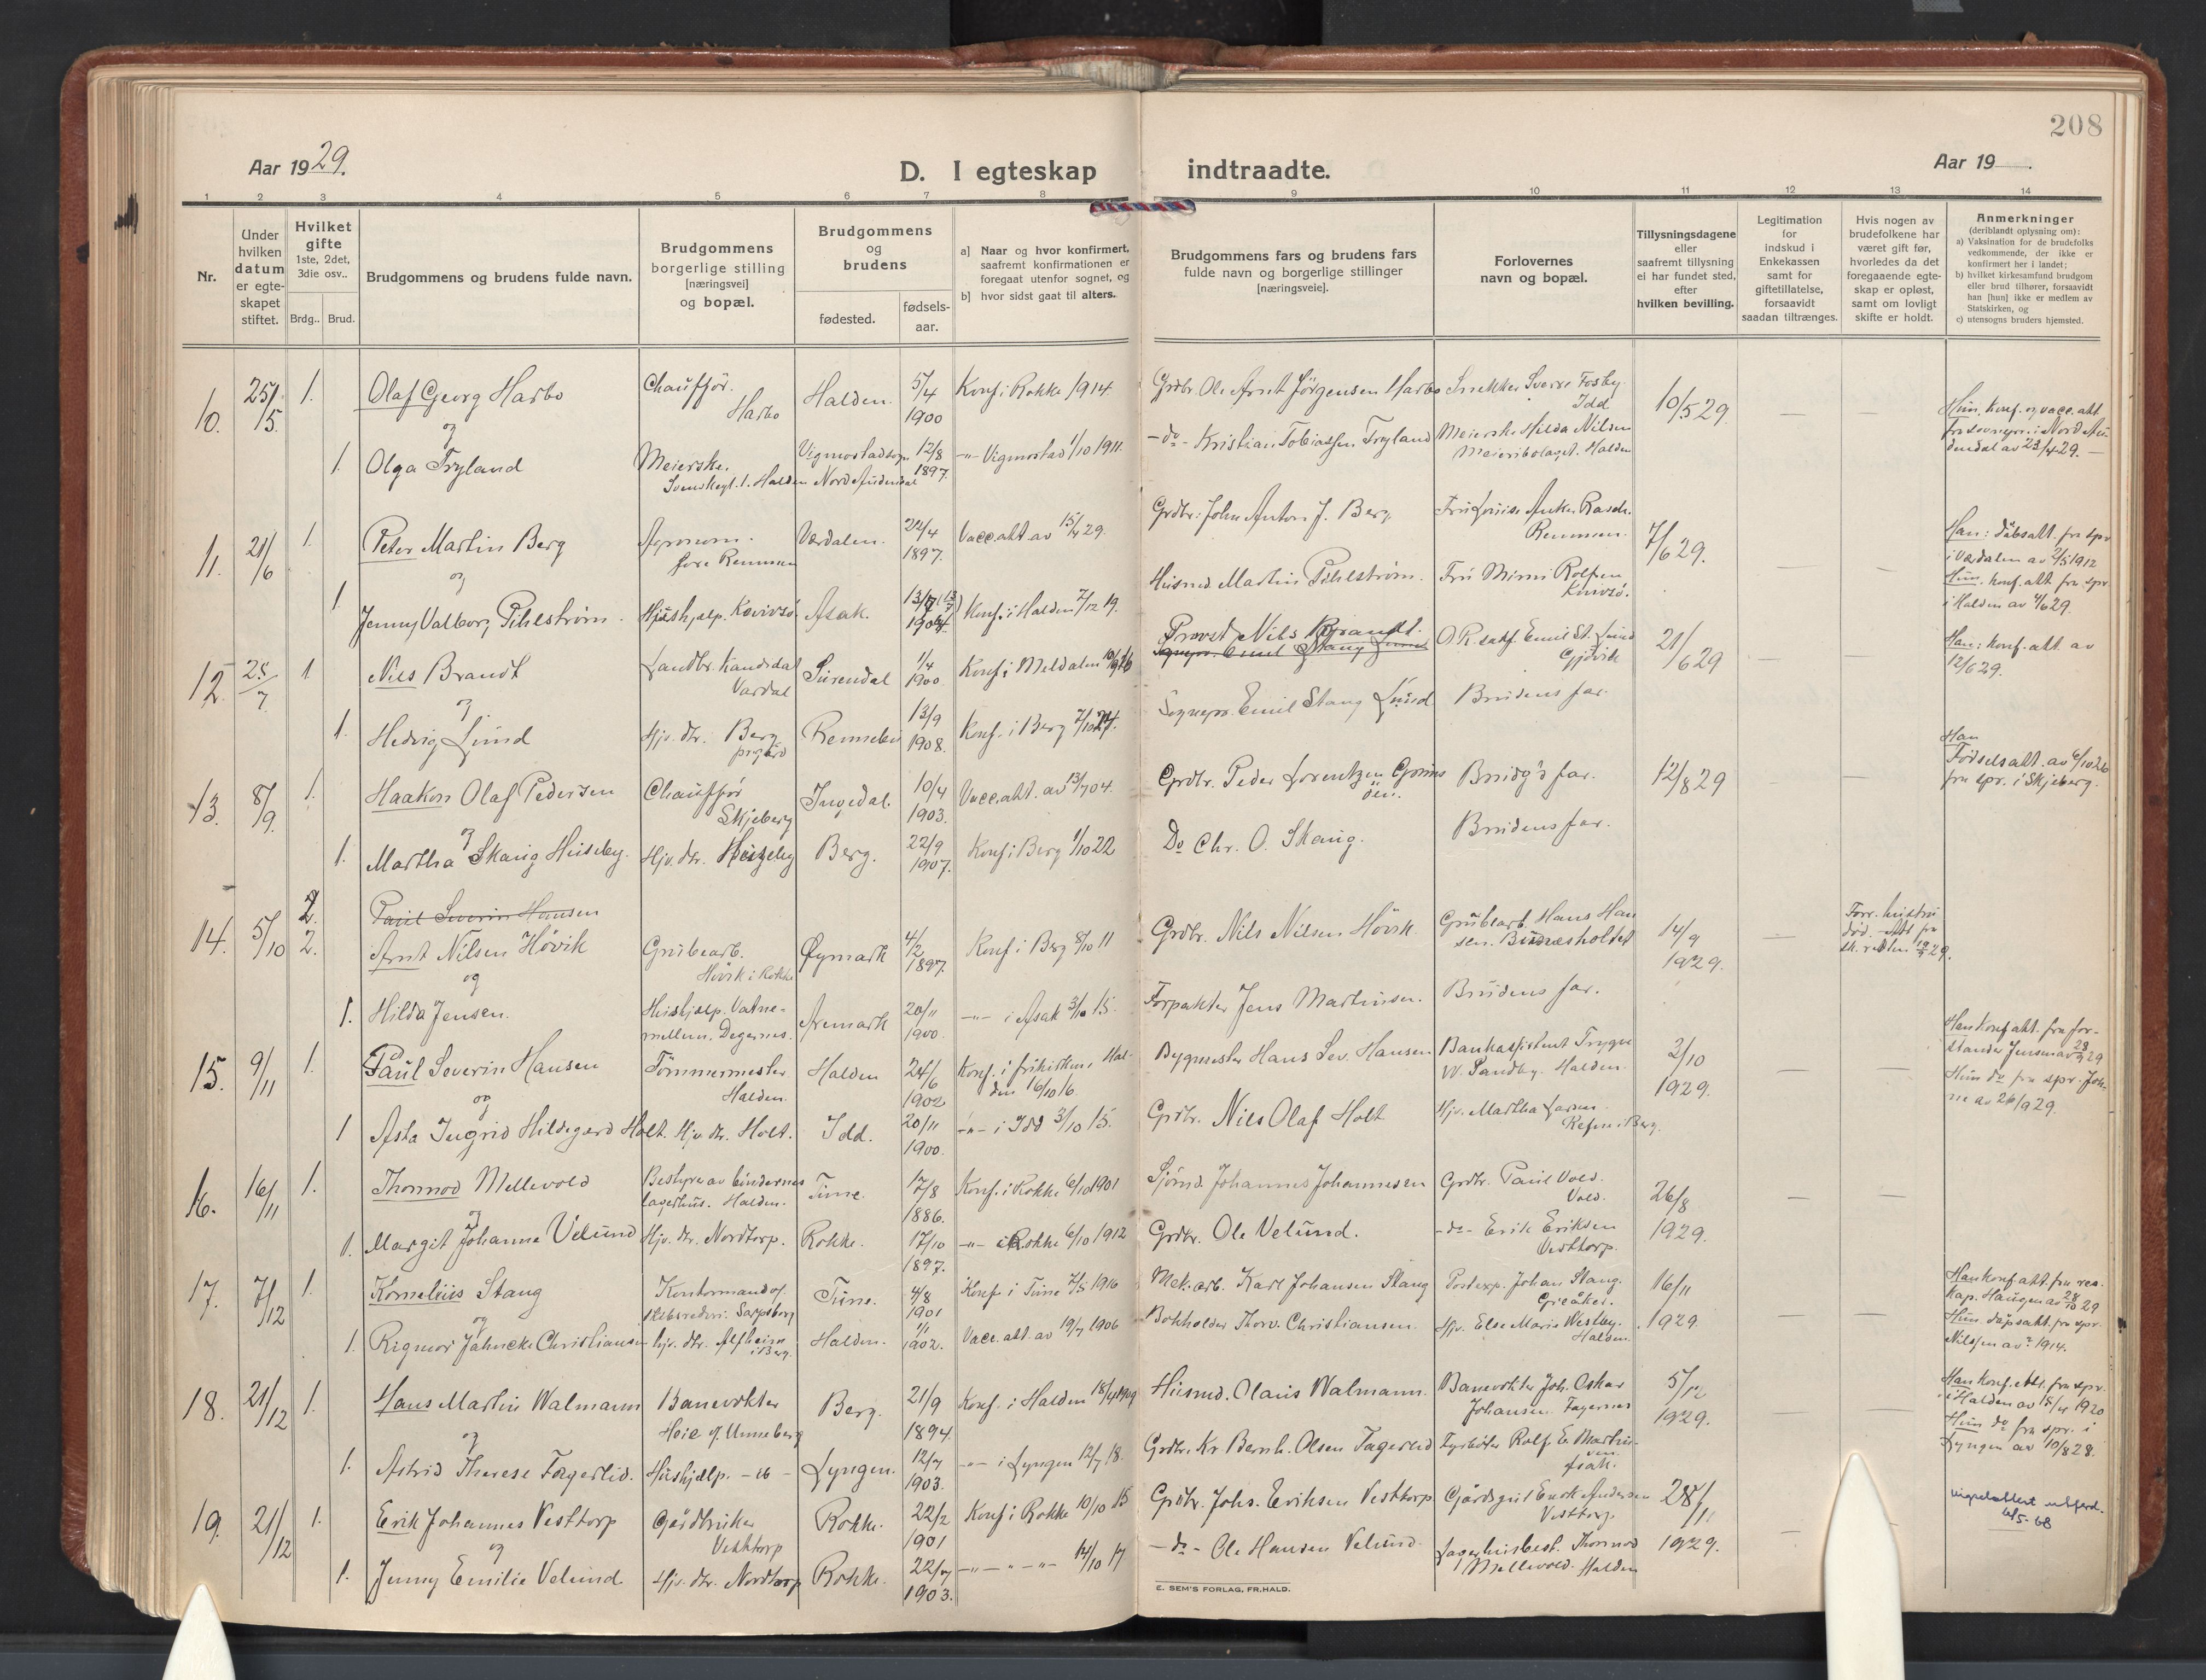 208
Aar 1929.
D. I egteskap indtraadte.
Aar 19
1 2 3 4 5 6 7 8 9 10 11 12 13 14
Nr.
Under hvilken datum er egteskapet stiftet.
Hvilket gifte 1ste, 2det, 3die osv..
Brdg.. Brud.
Brudgommens og brudens fulde navn.
Brudgommens borgerlige stilling [næringsvei] og bopæl.
Brudgommens og brudens
fødested.
fødsels-aar.
a] Naar og hvor konfirmert, saafremt konfirmationen er foregaat utenfor sognet, og
b] hvor sidst gaat til alters.
Brudgommens fars og brudens fars fulde navn og borgerlige stillinger [næringsveie].
Forlovernes navn og bopæl.
Tillysningsdagene eller saafremt tillysning ei har fundet sted, efter hvilken bevilling.
Legitimation for indskud i Enkekassen samt for giftetillatelse, forsaavidt saadan tiltrænges.
Hvis nogen av brudefolkene har været gift før, hvorledes da det foregaaende egteskap er opløst, samt om lovligt skifte er holdt.
Anmerkninger (deriblandt oplysning om):
a) Vaksination for de brudefolks vedkommende, der ikke er konfirmert her i landet;
b) hvilket kirkesamfund brudgom eller brud tilhører, forsaavidt han [hun] ikke er medlem av Statskirken, og
c) utensogns bruders hjemsted.
10. 25/5 1. Olaf Georg Harbo Chauffør. Harbo Halden. 5/4 1900 Konf. i Rokke 1914. Grdbr. Ole Arnt Jørgensen Harbo Snekker Sverre Fosby. Idd 10/5 29. — —
Hun. Konf. og vacc. att. fra sognepr. i Nord Audnedal av 23/4 29. —
og
1. Olga Tryland Meierske. Svenskegt. 1. Halden Vigmostad sogn. Nord Audnedal 12/8 1897. -"- Vigmostad 1/10 1911. -do- Kristian Tobiassen Tryland Meierske Hilda Nilsen Meieribolaget. Halden
11. 21/6 1. Peter Martin Berg Agronom. Remmen Værdalen. 24/4 1897. Vacc. att. av 15/4 29. Grdbr. John Anton J. Berg Fru Louise Anker Rasch. Remmen. 7/6 29. — —
Han: dåbsatt. fra spr. i Værdalen av 2/5 1912
Hun. konf. att. fra spr. i Halden av 4/6 29.
og
1 Jenny Valborg Pihlstrøm. Hushjelp. Asak. 13/7 1904. Konf. i Halden 7/12 19. Husmd. Martin Pihlstrøm. Fru Mimi Rolfsen
12. 25/7 1 Nils Brandt Landbr. Kandidat Vardal Surendal 1/4 1900 Konf. i Meldalen Provst Nils Brandt. O.R. sakf. Emil St. Lund Gjøvik 21/6 29 — —
Han: konf. att. av 12/6 29.
og
1. Hedvig Lund Hjv. dtr. Berg prgård Rennebu 13/9 1908. Konf. i Berg 7/10 24. Sognepr. Emil Stang Lund Brudens far.
13. 8/9. 1. Haakon Olaf Pedersen Chauffør Skjeberg Ingedal. 10/4 1903. Vacc. att. av 13/7 04. Grdbr. Peder Lorentzen Brudg's far. 12/8 29 — —
Han Fødselsatt. av 6/10 26 fra spr. i Skjeberg.
og
1. Martha Skaug Huseby. Hjv. dtr. Huseby Berg. 22/9 1907. Konf. i Berg 1/10 22 Do Chr. O. Skaug. Brudens far.
2. Paul Severin Hansen
14. 5/10 2. Arnt Nilsen Høvik Grubearb. Høvik i Rokke Øymark 4/2 1897. Konf. i Berg 8/10 11 Grdbr. Nils Nilsen Høvik Grubearb. Hans Hansen. 14/9 1929. —
Forr. hustru død. Att. fra sk. retten
og
1. Hilda Jensen. Hushjelp. Degernes. Aremark 20/11 1900. -"- i Asak 3/10 15. Forpakter Jens Martinsen. Brudens far.
15. 9/11 1. Paul Severin Hansen Tømmermester Halden. Halden 24/6 1902 Konf. i frikirken, Halden 16/10 16. Bygmester Hans Sev. Hansen Bankassistent Trygve W. Sandby. Halden. 2/10 1929. — —
Han konf. att. fra forstander Jensen av 28/9 29
Hun do fra spr. Johne av 26/9 29.
og
1 Asta Ingrid Hildegard Holt. Hjv. dtr. Holt. Idd. 20/11 1900. -"- i Idd 3/10 15. Grdbr. Nils Olaf Holt Hjv. Martha Larsen Refne i Berg.
16. 16/11 1. Thormod Mellevold Bestyrer av bøndernes lagerhus. Halden. Tune. 17/8 1886. Konf. i Rokke 6/10 1901 Sjømd. Johannes Johannesen Grdbr. Paul Vold. Vold. 26/8 1929. — —
og
1. Margit Johanne Velund Hjv. dtr. Nordtorp. Rokke. 17/10 1897. -"- i Rokke 6/10 1912 Grdbr. Ole Velund. -do- Erik Eriksen Vesttorp.
17. 7/12 1. Kornelius Stang Kontormand og skibsrederi. Sarpsborg Tune. 4/8 1901 Konf. i Tune 7/5 1916 Mek. arb. Karl Johansen Stang Postexp. Johan Stang. Greåker. 16/11 1929. — —
Han konf. att. fra res. kap. Haugen av 28/10 29
Hun. dåpsatt. fra spr. Nilssen av ? 1914.
og
1. Rigmor Jahncke Christiansen hjv. dtr. Alfheim i Berg. Halden. 1/11 1902. Vacc. att. av 19/7 1906 Bokholder Thorv. Christiansen. Hjv. Else Marie Westby. Halden
18. 21/12 1. Hans Martin Walmann Banevokter Berg. 21/9 1894 Konf. i Halden 18/4 1909 Husmd. Olaus Walmann. Banevokter Joh. Oskar Johansen. Fagernes 5/12 1929. — —
Han konf. att. fra spr. i Halden av 15/4 1920
Hun do fra spr. i Lyngen av 10/8 28.
og
1. Astrid Therese Fagerlid. Hushjælp. Lyngen. 12/7 1903. -"- i Lyngen 12/7 18. Grdbr. Kr. Bernh. Olsen Fagerlid Fyrbøter Rolf E. Martinsen. Asak.
19. 21/12 1. Erik Johannes Vesttorp Gårdbruker Vesttorp Rokke. 22/2 1901 Konf. i Rokke 10/10 15 Grdbr. Johs. Eriksen Vesttorp Gårdsgut Enok Andersen Vesttorp 28/11 1929. — —
vigselattest utferd. 6/5-68
og
1. Jenny Emilie Velund Hjv. dtr. Nordtorp Rokke. 22/7 1903. -"- 14/10 17 -do- Ole Hansen Velund. Lagerhusbest. Thormod Mellevold. Halden
E. SEM'S FORLAG, FR.HALD.